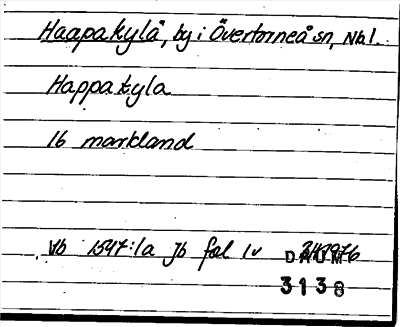 Haapakylä, by i Övertorneå sn, Nbl.
Happakyla
16 markland
Vb 1547:1a Jb fol 1v
DAUM
3138